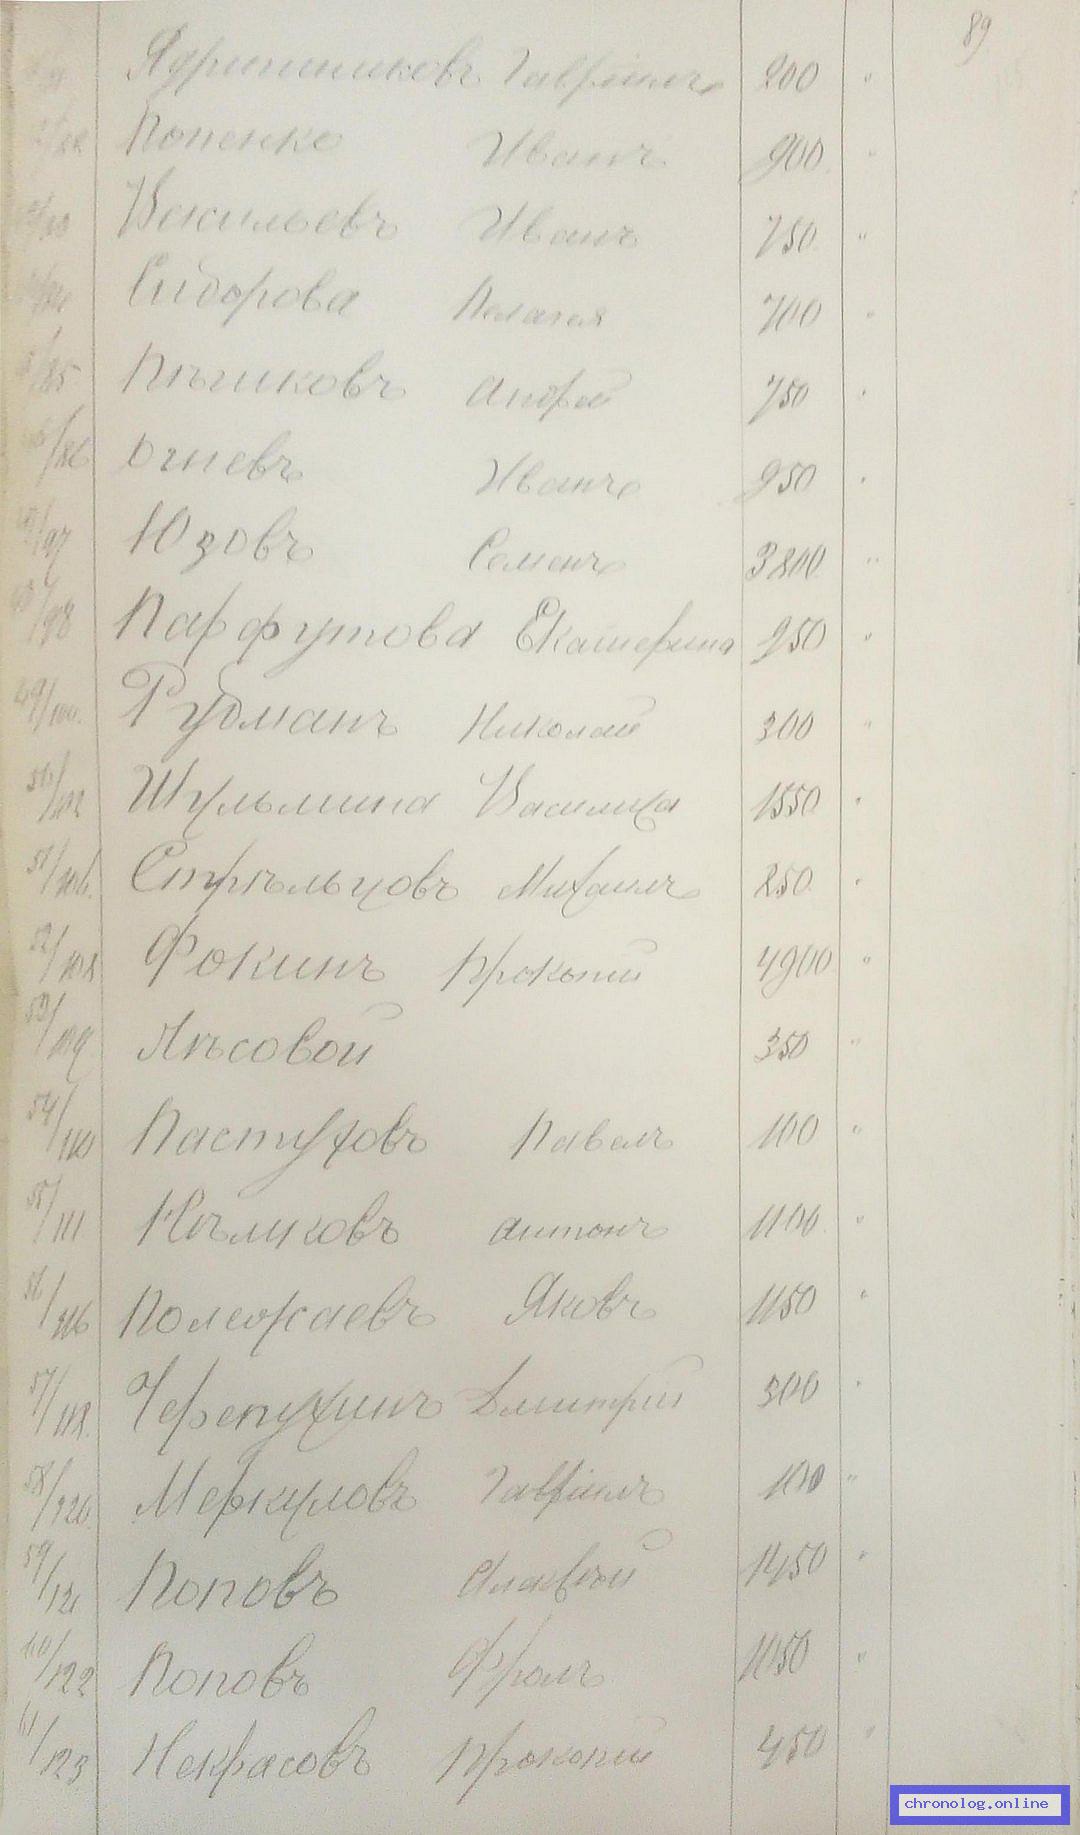 89
Ядринниковъ Гавріилъ 200 "
Попенко Иванъ 900 "
Васильевъ Иванъ 750 "
Сидорова Пелагея 700 "
85 Пѣшковъ Андрей 750 "
/86 Огневъ Иванъ 950 "
/97 Юзовъ Семенъ 3800 "
48/98 Парфутова Екатерина 950 "
49/100. Рудманъ Николай 300 "
50/102 Шульмина Василиса 1550 "
51/106. Стрѣльцовъ Михаилъ 250 "
52/108 Фокинъ Прокопій 4900 "
53/109 Лѣсовой 350 "
54/110 Пастуховъ Павелъ 100 "
55/111 Антонъ 1100 "
56/116 Полежаевъ Яковъ 1150 "
57/118. Черепухинъ Дмитрій 300 "
58/120. Меркуловъ Гавріилъ 100 "
59/121 Поповъ Алексѣй 1450 "
60/122 Поповъ Фролъ 1050 "
61/123 Некрасовъ Прокопій 450 "
chronolog.online